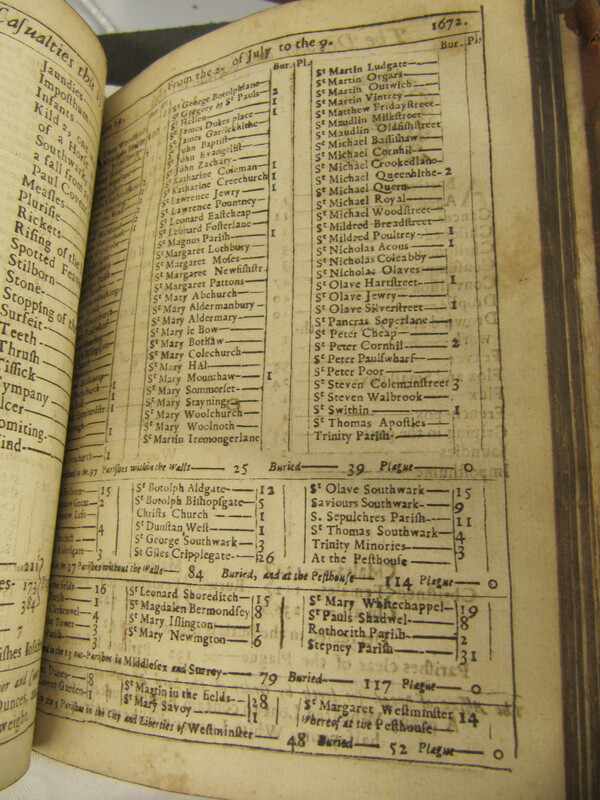 Casualties this
Jaundies
Imposthume
Infants
Kild 2, one
of a Horse
Southwark
a fall from
Paul Coven
Measles
Plurisie
Rickets
Rising of the
Spotted Feav
Stilborn
Stone
Stopping of th
Surfeit
Teeth
Thrush
Tissick
Tympany
Ulcer
Vomiting
Wind
221
173
384
7
From the 2 of July to the 9. 1672.
Bur. Pl.
St George Botolphlane
St Gregory by St Pauls 2
St Hellen 1
St James Dukes place 1
St James Garlickhithe
St John Baptist 1
St John Evangelist
St John Zachary
St Katharine Coleman 1
St Katharine Creechurch 1
St Lawrence Jewry 1
St Lawrence Pountney
St Leonard Eastcheap
St Leonard Fosterlane
St Magnus Parish 1
St Margaret Lothbury
St Margaret Moses
St Margaret Newfishstr.
St Margaret Pattons
St Mary Abchurch
St Mary Aldermanbury
St Mary Aldermary
St Mary le Bow
St Mary Bothaw
St Mary Colechurch
St Mary Hill
St Mary Mounthaw 1
St Mary Sommerset
St Mary Stayning
St Mary Woolchurch
St Mary Woolnoth
St Martin Iremongerlane
Bur. Pl.
St Martin Ludgate
St Martin Orgars
St Martin Outwich
St Martin Vintrey
St Matthew Fridaystreet
St Maudlin Milkstreet
St Maudlin Oldfishstreet
St Michael Bassishaw
St Michael Cornhil
St Michael Crookedlane
St Michael Queenhithe 2
St Michael Quern
St Michael Royal
St Michael Woodstreet
St Mildred Breadstreet
St Mildred Poultrey 1
St Nicholas Acons 1
St Nicholas Coleabby
St Nicholas Olaves
St Olave Hartstreet 1
St Olave Jewry
St Olave Silverstreet 1
St Pancras Soperlane
St Peter Cheap
St Peter Cornhil 2
St Peter Paulswharf
St Peter Poor
St Steven Colemanstreet 3
St Steven Walbrook
St Swithin 1
St Thomas Apostles
Trinity Parish
in the 97 Parishes within the Walls 25 Buried 39 Plague 0
15
2
4
3
St Botolph Aldgate 12
St Botolph Bishopsgate 5
Christs Church 1
St Dunstan West 1
St George Southwark 3
St Giles Cripplegate 26
St Olave Southwark 15
Saviours Southwark 9
S. Sepulchres Parish 11
St Thomas Southwark 4
Trinity Minories
At the Pesthouse
in the 17 Parishes without the Walls 84 Buried, and at the Pesthouse 114 Plague 0
fields 16
1
4
3
3
St Leonard Shoreditch 15
St Magdalen Bermondsey 8
St Mary Islington 1
St Mary Newington 6
St Mary Whitechappel 19
St Pauls Shadwel 8
Rothorith Parish 2
Stepney Parish 31
in the 13 out-Parishes in Middlesex and Surrey 79 Buried 117 Plague 0
Danes 8
Covent Garden 1
St Martin in the fields 28
St Mary Savoy 1
St Margaret Westminster 14
Whereof at the Pesthouse
in the 5 Parishes in the City and Liberties of Westminster 48 Buried 52 Plague 0